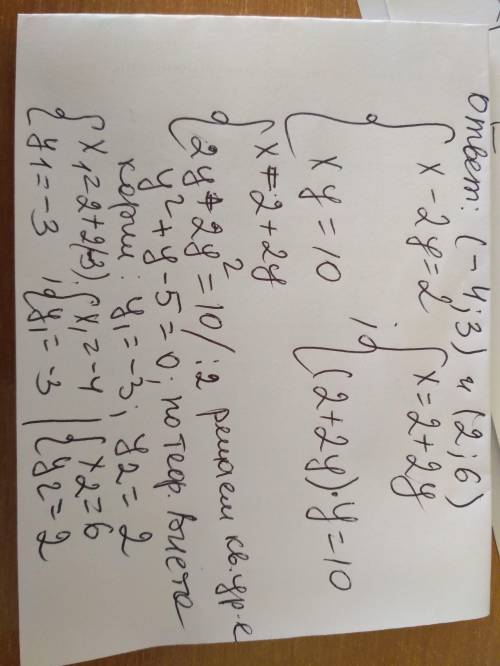 Ответ: (-4; 3) и (2; 6)
{ x - 2y = 2 ; { x = 2 + 2y
{ xy = 10 { (2 + 2y)·y = 10
{ x = 2 + 2y
{ 2y + 2y² = 10 /:2 решаем кв. ур-е
y² + y - 5 = 0; по теор. Виета
корни: y₁ = -3; y₂ = 2
{ x₁ = 2 + 2(-3) ; { x₁ = -4 | { x₂ = 6
{ y₁ = -3 { y₁ = -3 | { y₂ = 2